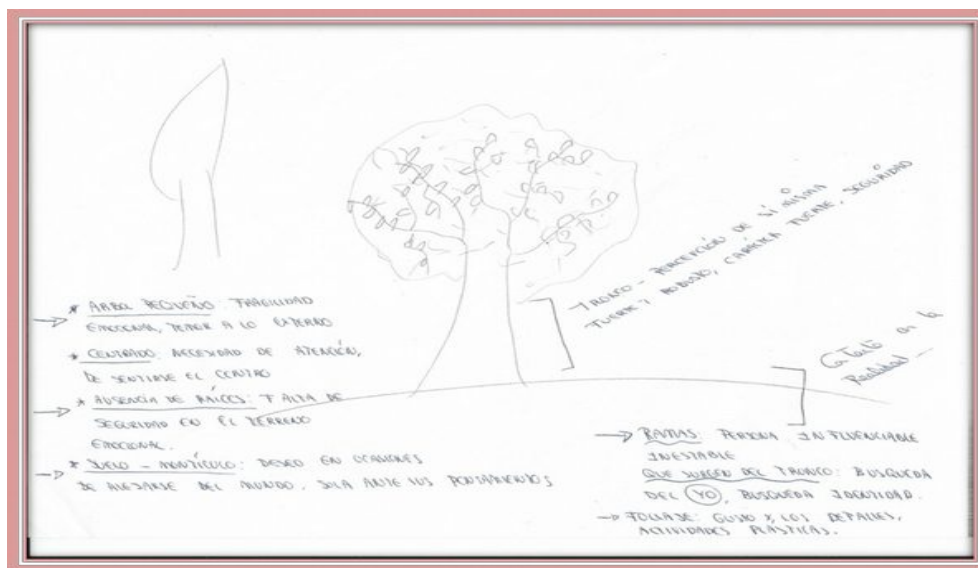 * ARBOL PEQUEÑO: FRAGILIDAD
EMOCIONAL, TEMOR A LO EXTERNO
* CENTRADO: NECESIDAD DE ATENCIÓN,
DE SENTIRSE EL CENTRO
* AUSENCIA DE RAÍCES: FALTA DE
SEGURIDAD EN EL TERRENO
EMOCIONAL.
* SUELO - MONTÍCULO: DESEO EN OCASIONES
DE ALEJARSE DEL MUNDO. SOLA ANTE SUS
TRONCO - PERCEPCIÓN DE SÍ MISMA
FUERTE Y ROBUSTO, CARÁCTER FUERTE, SEGURIDAD
Contacto con la
Realidad
RAMAS: PERSONA INFLUENCIABLE
INESTABLE
QUE SURGEN DEL TRONCO: BUSQUEDA
DEL YO, BUSQUEDA IDENTIDAD.
FOLLAJE: GUSTO X LOS DETALLES,
ACTIVIDADES PLÁSTICAS.